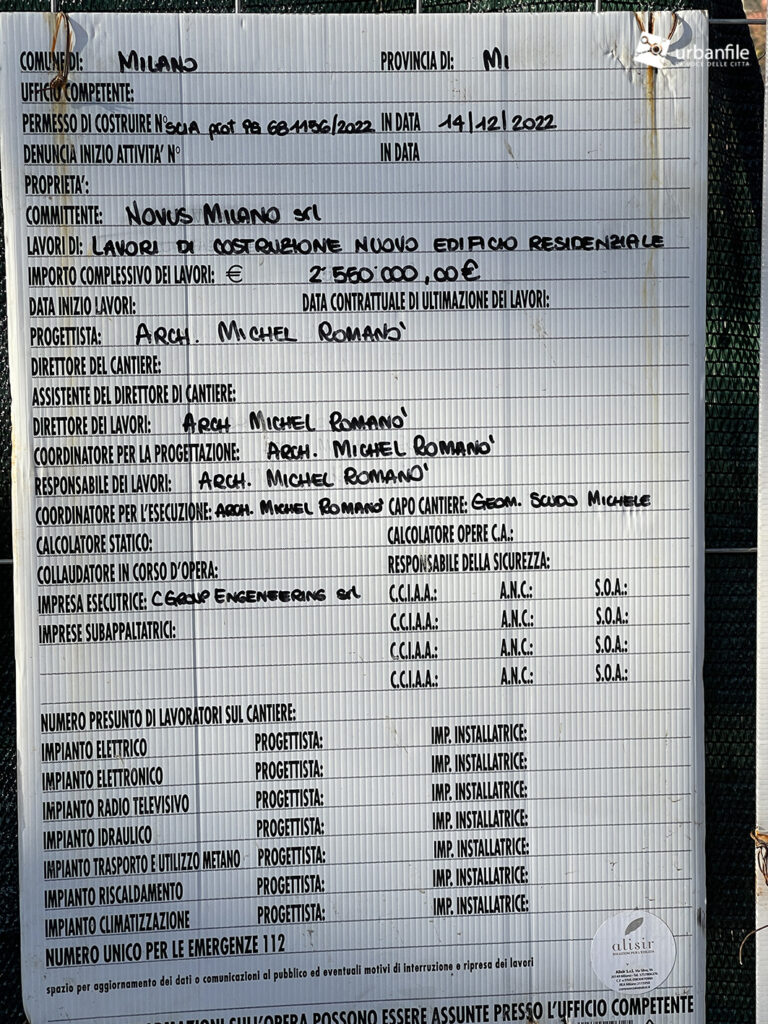 urbanfile
LA VOCE DELLE CITTÀ
COMUNE DI: MILANO PROVINCIA DI: MI
UFFICIO COMPETENTE:
PERMESSO DI COSTRUIRE N° SCIA prot PG 681156/2022 IN DATA 14/12/2022
DENUNCIA INIZIO ATTIVITA' N° IN DATA
PROPRIETA':
COMMITTENTE: NOVUS MILANO srl
LAVORI DI: LAVORI DI COSTRUZIONE NUOVO EDIFICIO RESIDENZIALE
IMPORTO COMPLESSIVO DEI LAVORI: € 2'560'000,00€
DATA INIZIO LAVORI: DATA CONTRATTUALE DI ULTIMAZIONE DEI LAVORI:
PROGETTISTA: ARCH. MICHEL ROMANO'
DIRETTORE DEL CANTIERE:
ASSISTENTE DEL DIRETTORE DI CANTIERE:
DIRETTORE DEI LAVORI: ARCH MICHEL ROMANO'
COORDINATORE PER LA PROGETTAZIONE: ARCH. MICHEL ROMANO'
RESPONSABILE DEI LAVORI: ARCH. MICHEL ROMANO'
COORDINATORE PER L'ESECUZIONE: ARCH. MICHEL ROMANO' CAPO CANTIERE: GEOM. SCUDO MICHELE
CALCOLATORE STATICO: CALCOLATORE OPERE C.A.:
COLLAUDATORE IN CORSO D'OPERA: RESPONSABILE DELLA SICUREZZA:
IMPRESA ESECUTRICE: C GROUP ENGENEERING srl C.C.I.A.A.: A.N.C.: S.O.A.:
IMPRESE SUBAPPALTATRICI: C.C.I.A.A.: A.N.C.: S.O.A.:
C.C.I.A.A.: A.N.C.: S.O.A.:
C.C.I.A.A.: A.N.C.: S.O.A.:
NUMERO PRESUNTO DI LAVORATORI SUL CANTIERE:
IMPIANTO ELETTRICO PROGETTISTA: IMP. INSTALLATRICE:
IMPIANTO ELETTRONICO PROGETTISTA: IMP. INSTALLATRICE:
IMPIANTO RADIO TELEVISIVO PROGETTISTA: IMP. INSTALLATRICE:
IMPIANTO IDRAULICO PROGETTISTA: IMP. INSTALLATRICE:
IMPIANTO TRASPORTO E UTILIZZO METANO PROGETTISTA: IMP. INSTALLATRICE:
IMPIANTO RISCALDAMENTO PROGETTISTA: IMP. INSTALLATRICE:
IMPIANTO CLIMATIZZAZIONE PROGETTISTA: IMP. INSTALLATRICE:
NUMERO UNICO PER LE EMERGENZE 112
alisir
spazio per aggiornamento dei dati o comunicazioni al pubblico ed eventuali motivi di interruzione e ripresa dei lavori
SULL'OPERA POSSONO ESSERE ASSUNTE PRESSO L'UFFICIO COMPETENTE